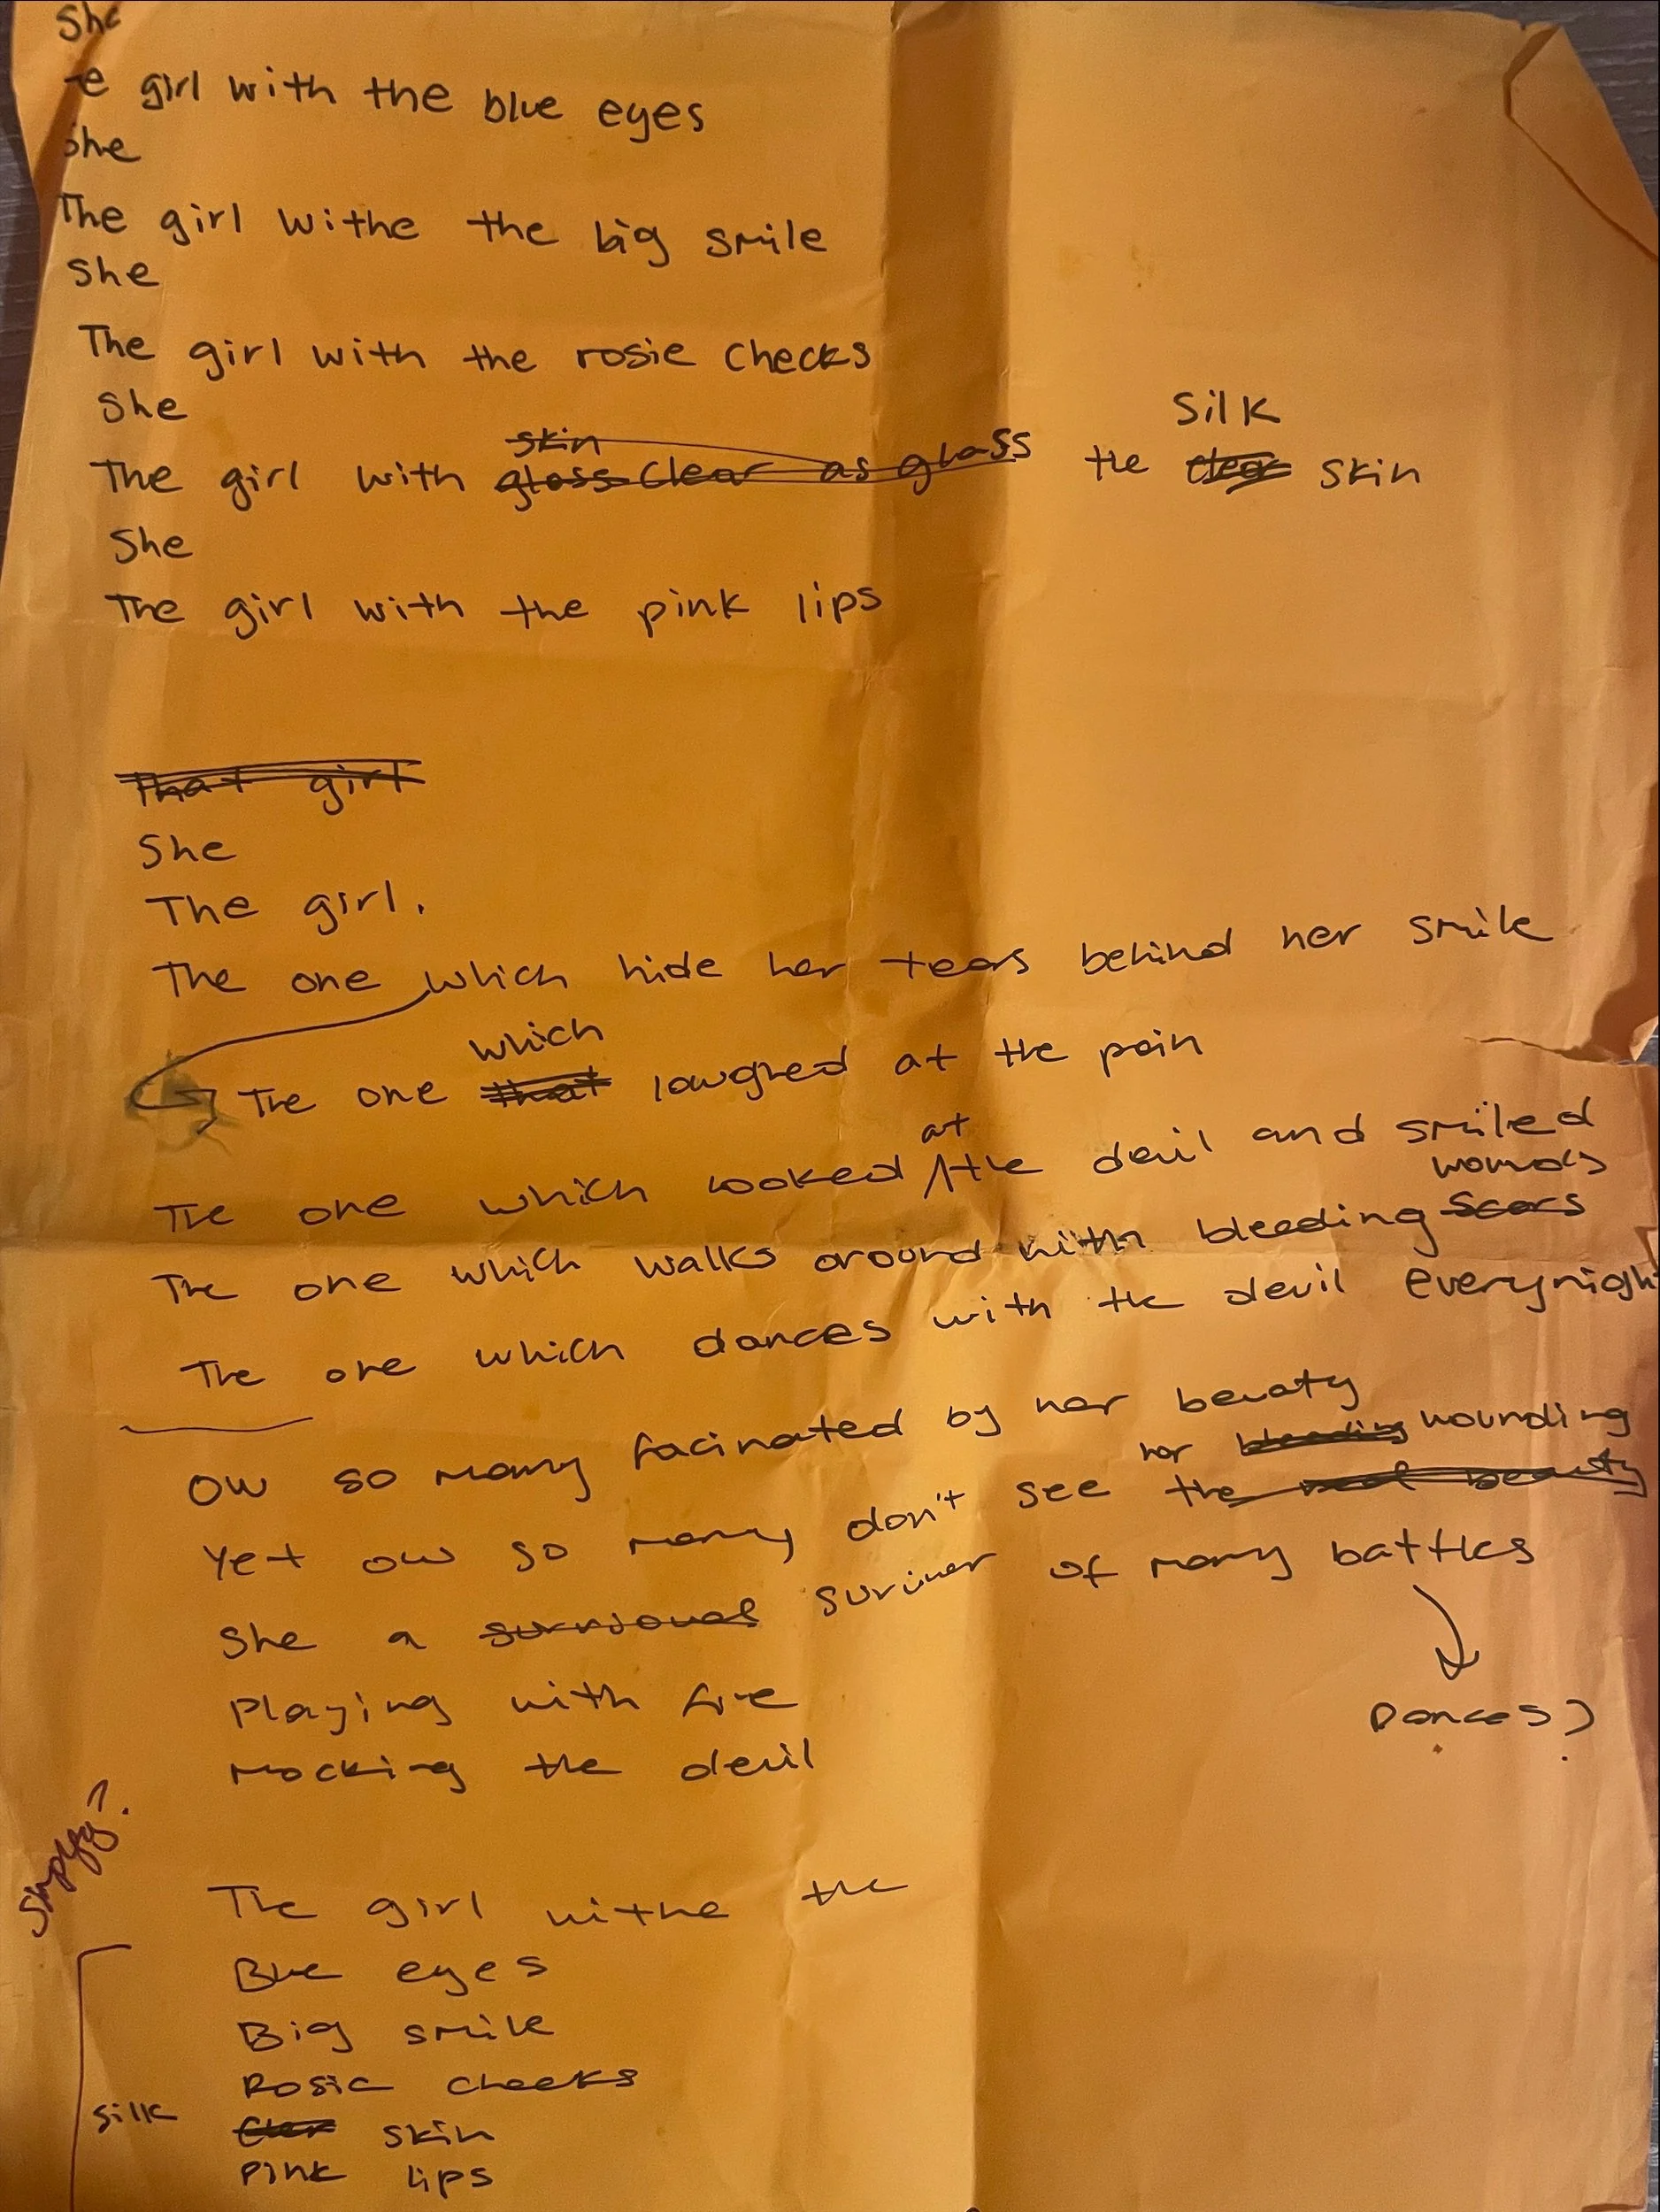 She
e girl with the blue eyes
She
The girl withe the big smile
She
The girl with the rosie checks
She
skin
Silk
The girl with gloss clear as glass the clear skin
She
The girl with the pink lips
That girl
She
The girl.
The one which hide her tears behind her smile
which
The one that laughed at the pain
at
The one which looked the devil and smiled
wounds
The one which walks around with bleeding scars
The one which dances with the devil everynight
Ow so many facinated by her beuaty
her bleeding wounding
Yet ow so many don't see the real beauty
She a surviver of many battles
Dances?
Playing with fire
Mocking the devil
The girl withe the
Blue eyes
Big smile
Rosie cheeks
silk
Clear skin
Pink lips